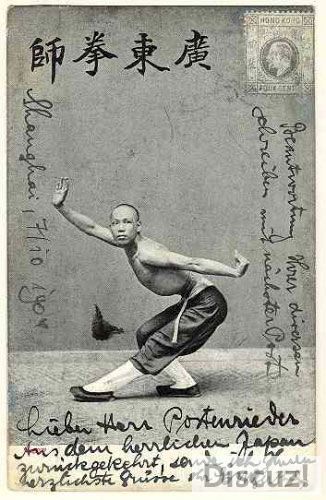 師拳東廣
HONG KONG
FOUR CENTS
Shanghai, 7/10 1904
Beantwortung Ihrer diversen
Schreiben mit nächster Post
Lieber Herr Postenrieder
Aus dem herrlichen Japan
zurückgekehrt, sende ich Ihnen
herzlichste Grüsse
Discuz!